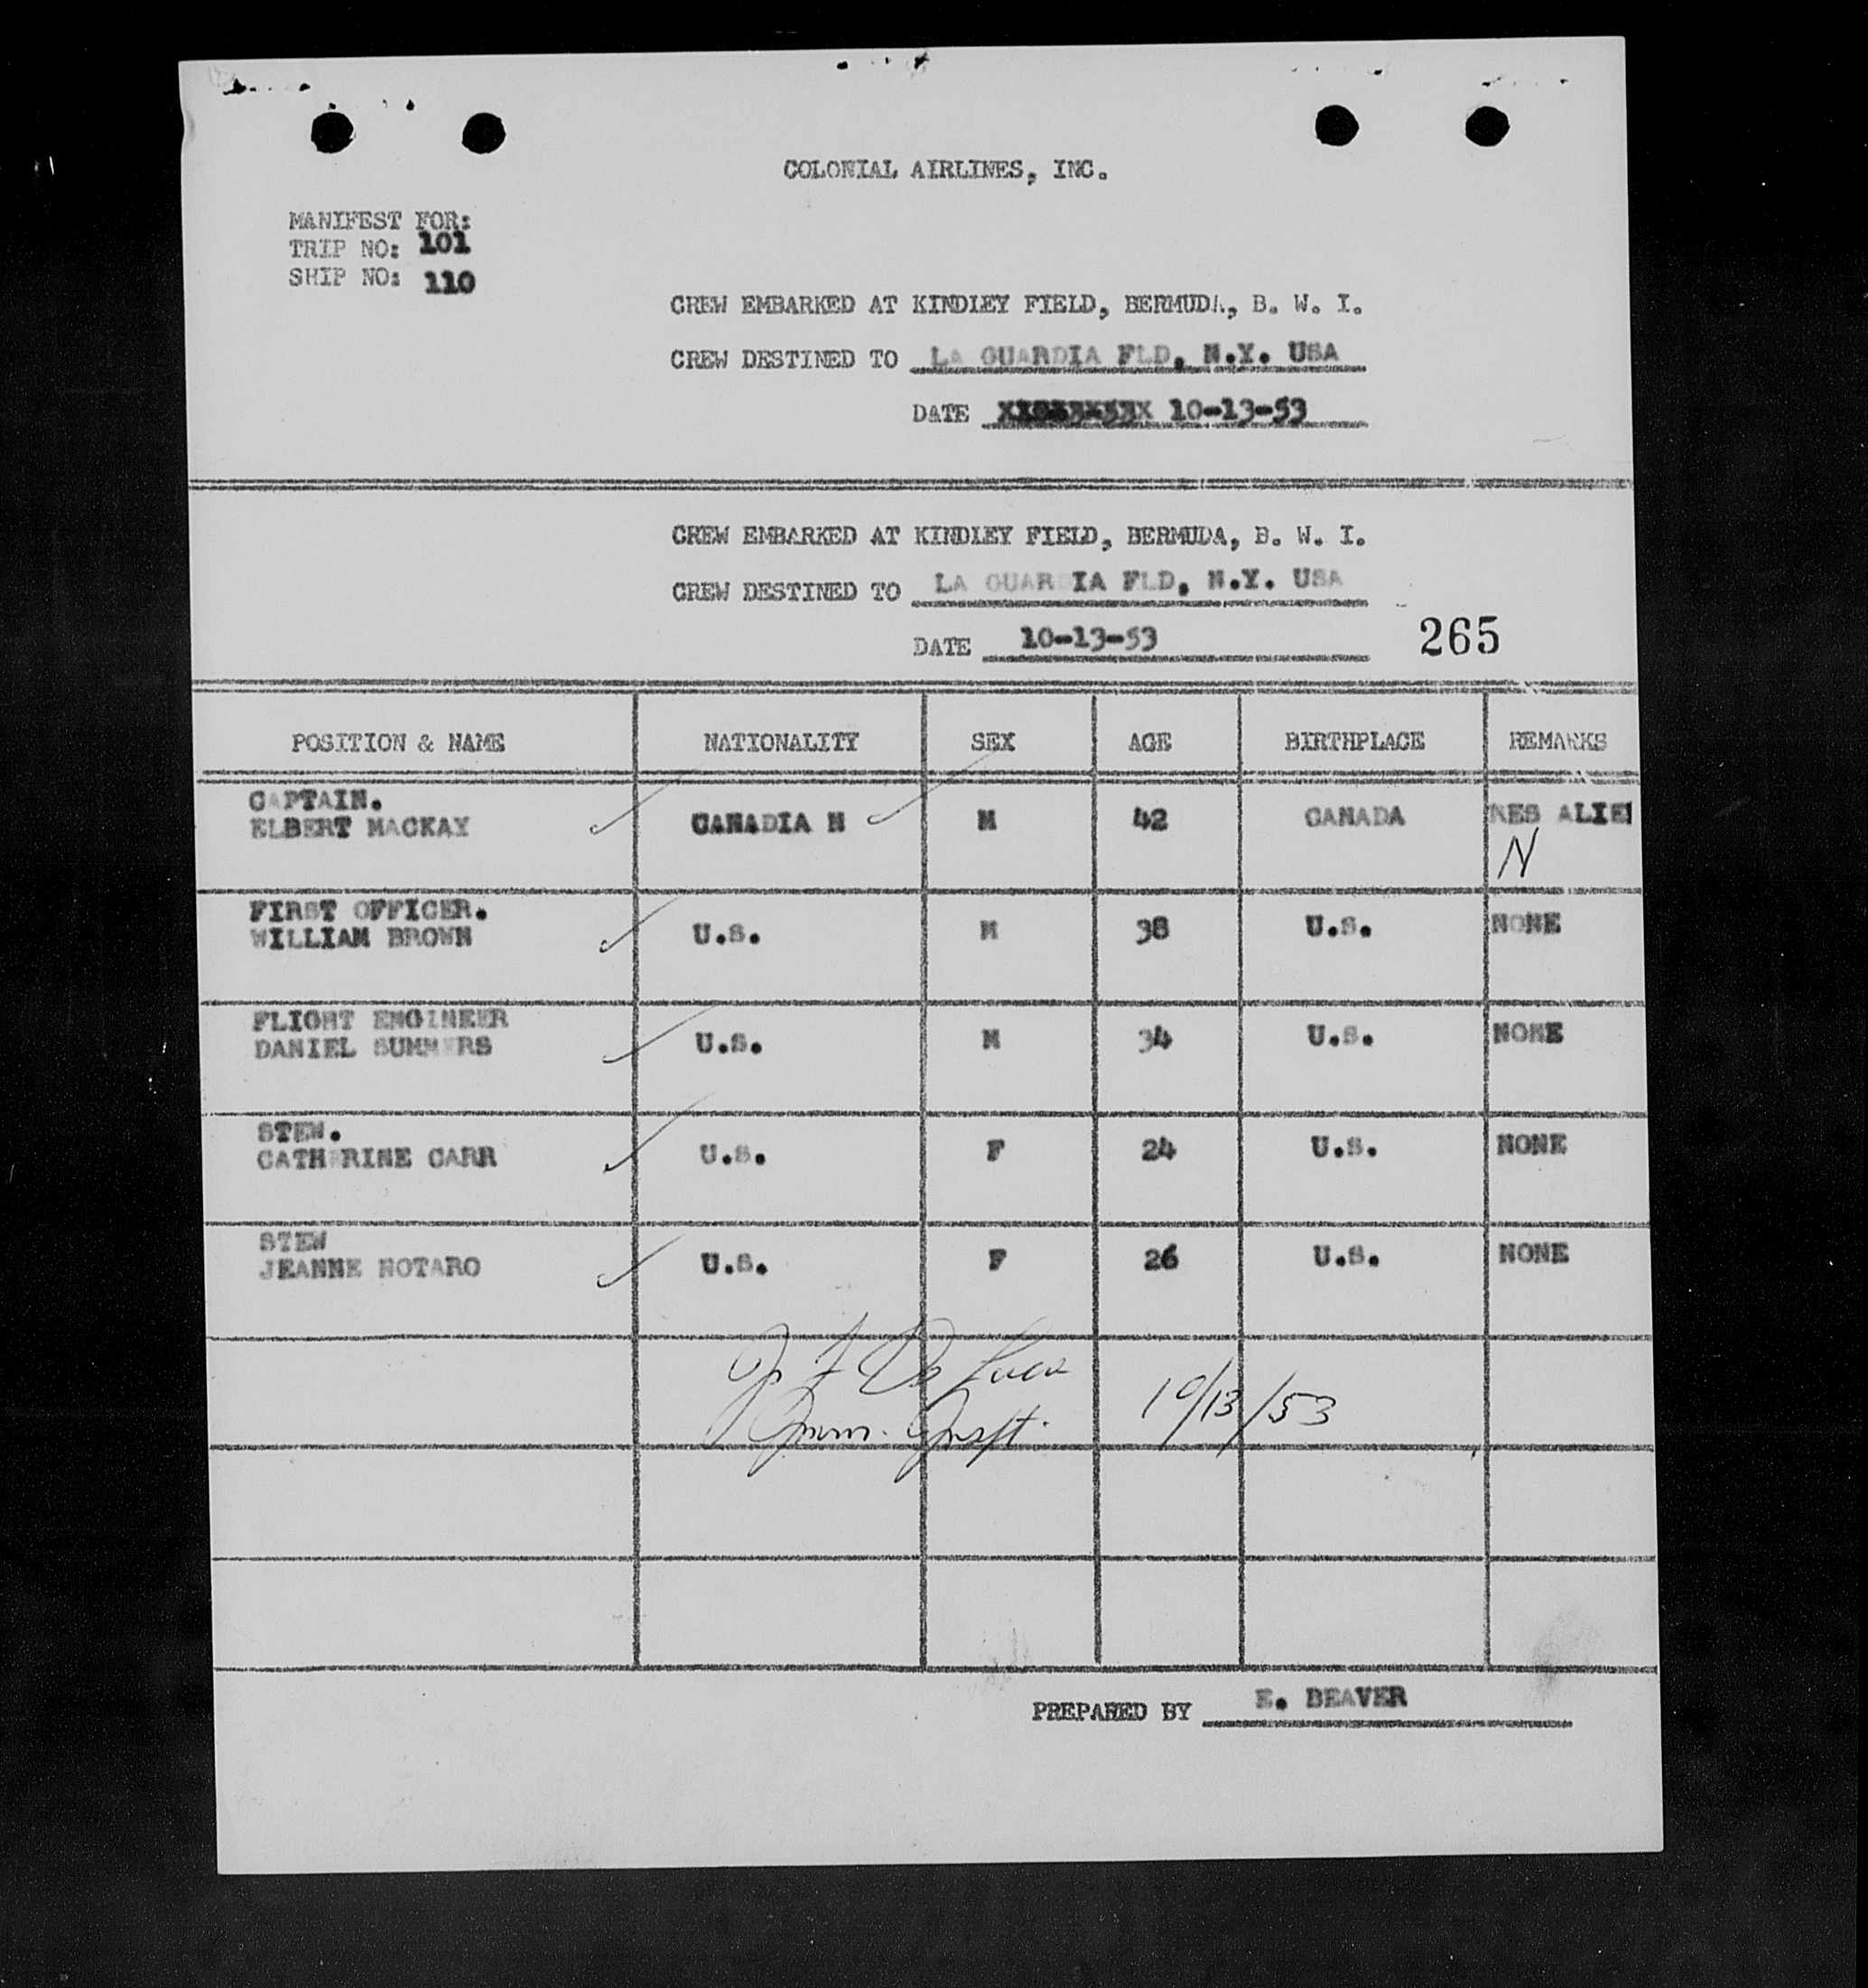 COLONIAL AIRLINES, INC.
MANIFEST FOR:
TRIP NO: 101
SHIP NO: 110
CREW EMBARKED AT KINDLEY FIELD, BERMUDA, B. W. I.
CREW DESTINED TO LA GUARDIA FLD, N.Y. USA
DATE 10-13-53
CREW EMBARKED AT KINDLEY FIELD, BERMUDA, B. W. I.
CREW DESTINED TO LA GUARDIA FLD, N.Y. USA
DATE 10-13-53 265
POSITION & NAME NATIONALITY SEX AGE BIRTHPLACE REMARKS
CAPTAIN.
ELBERT MACKAY CANADIA N M 42 CANADA RES ALIEN
N
FIRST OFFICER.
WILLIAM BROWN U.S. M 38 U.S. NONE
FLIGHT ENGINEER
DANIEL SUMMERS U.S. M 34 U.S. NONE
STEW.
CATHERINE CARR U.S. F 24 U.S. NONE
STEW
JEANNE NOTARO U.S. F 26 U.S. NONE
De Luca
Imm. Inspt. 10/13/53
PREPARED BY E. BEAVER